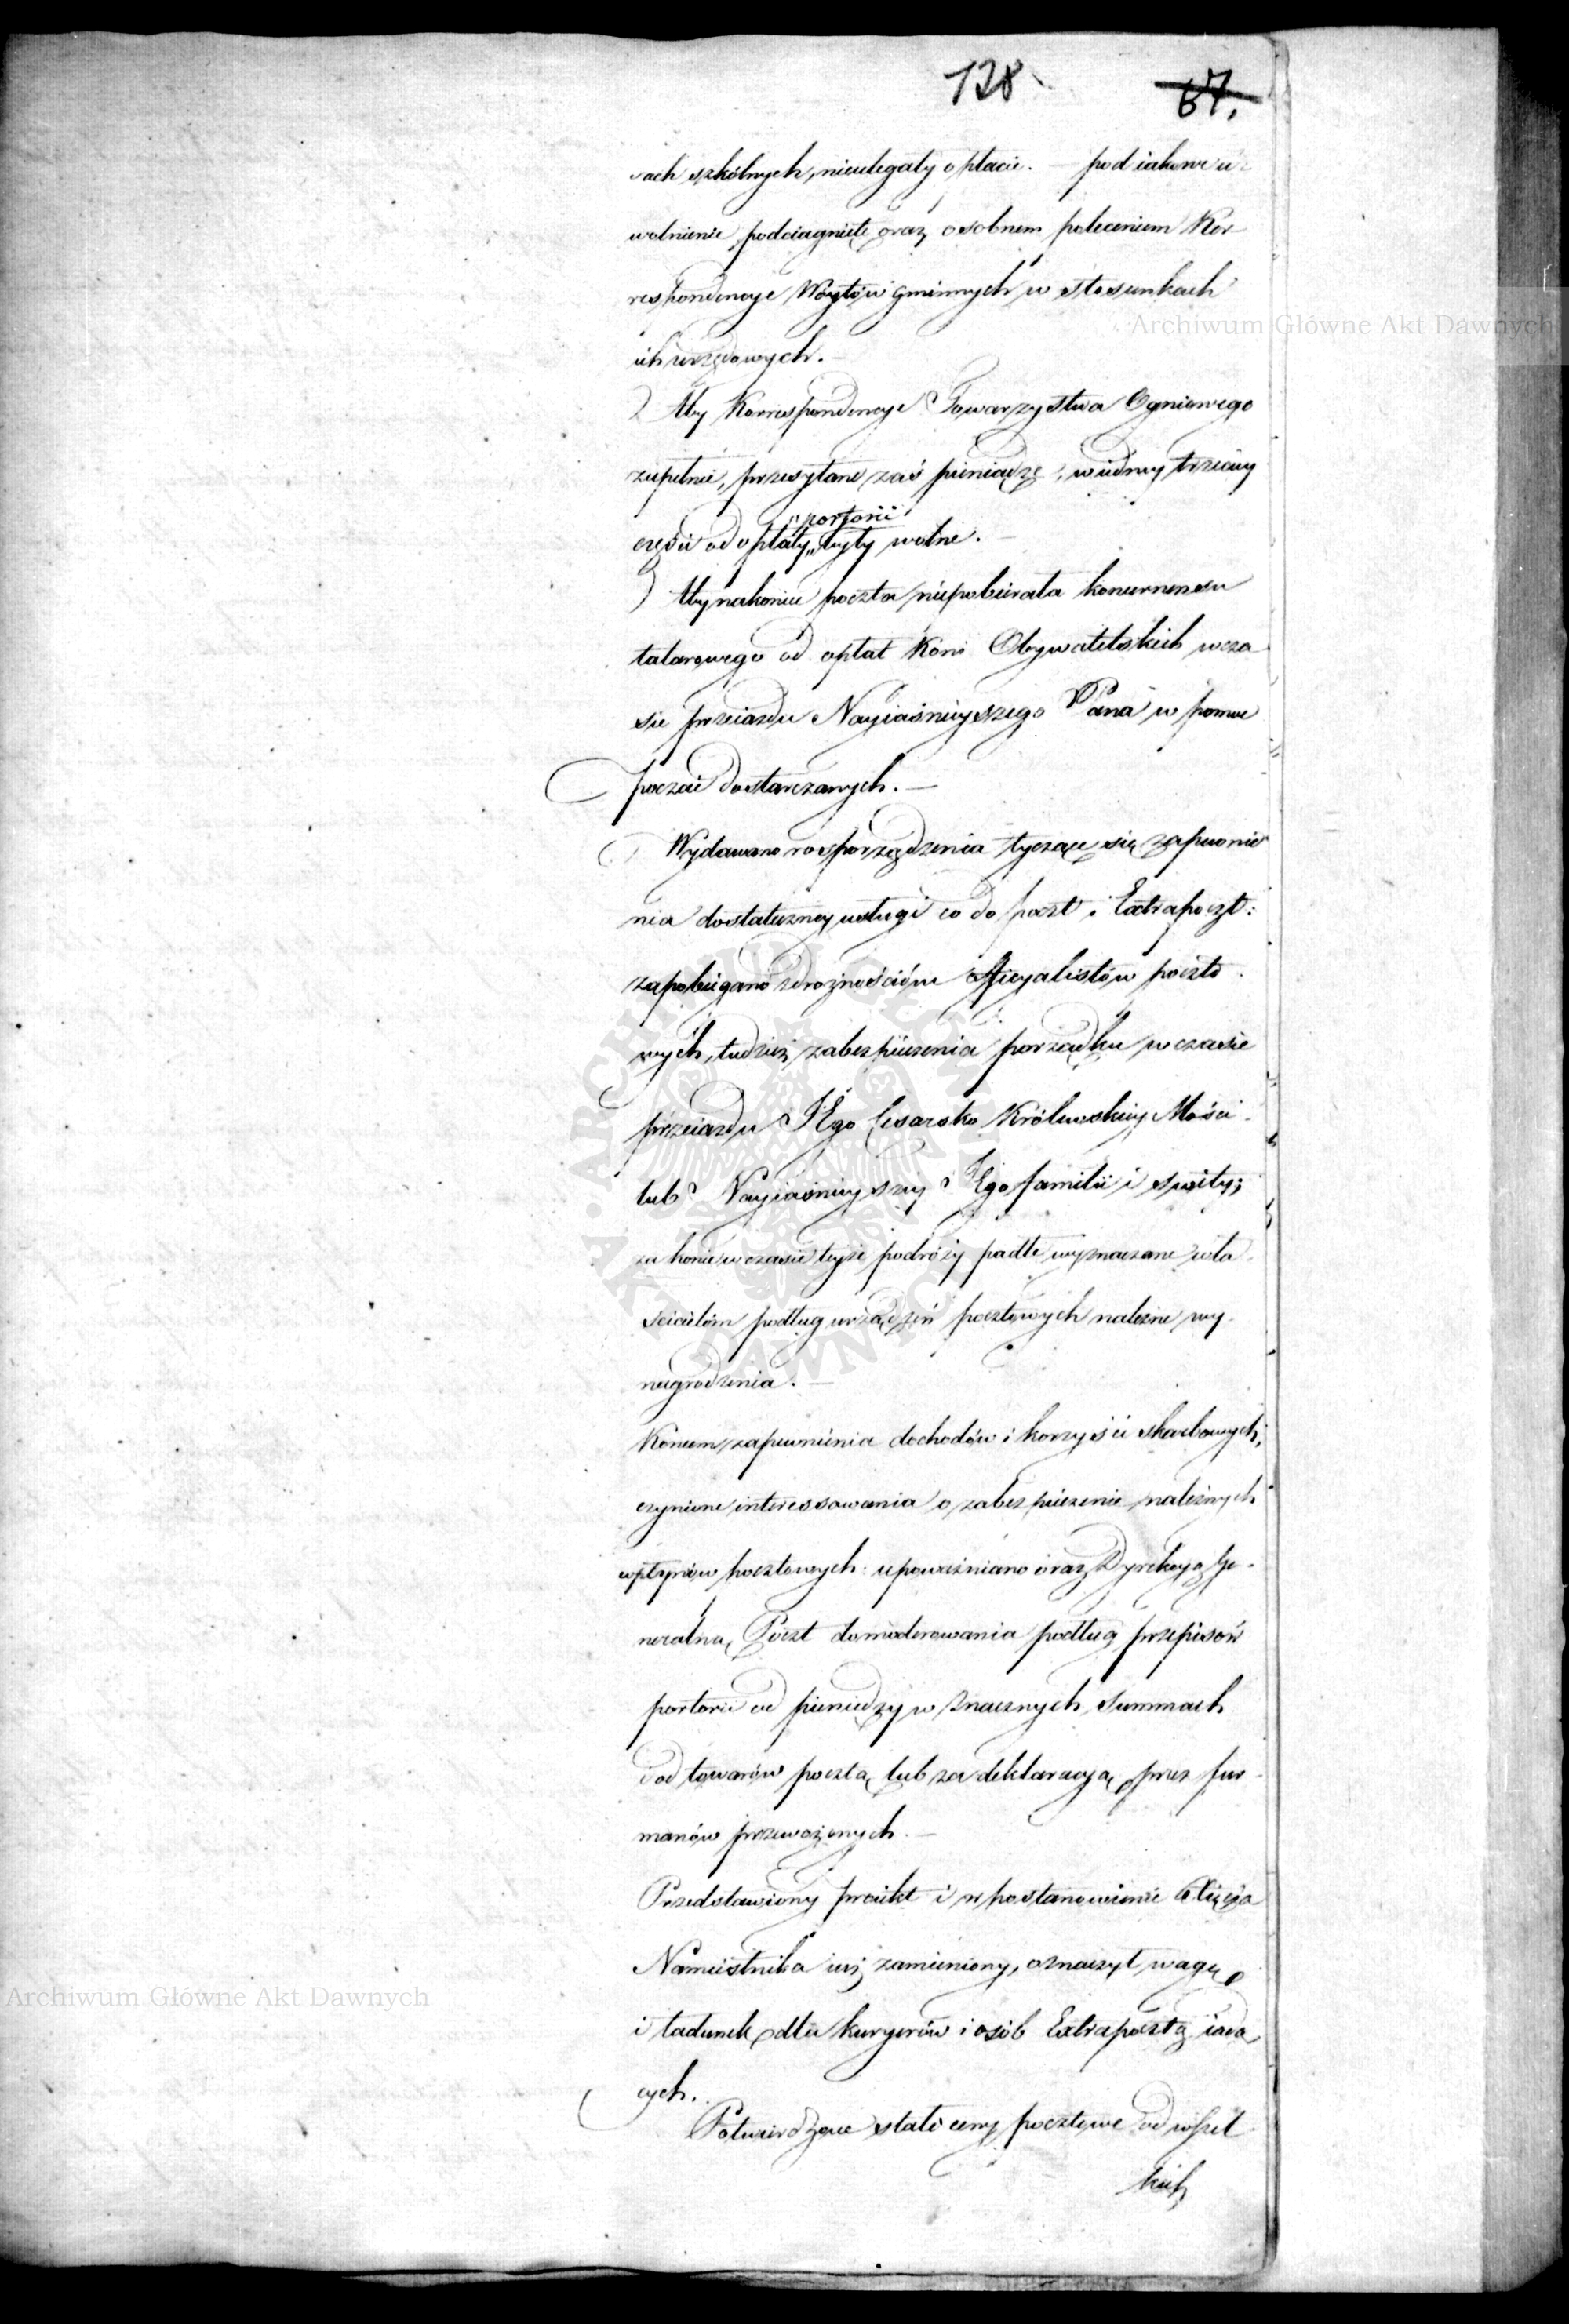 128 67.
sach szkólnych, nieulegały opłacie. — pod iakowe u-
wolnienie podciągnięte oraz osobnem poleceniem Kor-
respondencye Woytów gminnych w stosunkach
ich urzędowych. —
Aby Korrespondencye Towarzystwa Ogniowego
zupełnie, przesyłane zaś pieniądze, w iedney trzeciey
portorii
części od opłaty były wolne. —
Aby nakoniec poczta niepobierała konwnensu
talarowego od opłat Koni Obywatelskich w cza-
sie przeiazdu Nayiaśnieyszego Pana w pomoc
poczcie dostarczanych. —
Wydawano rosporządzenia tyczące się zapewnie
nia dostateczney usługi co do poczt i Extrapoczt:
zapobiegano zdrożnościom Officyalistów poczto-
wych, tudzież zabezpieczenia porządku w czasie
przeiazdu JEgo Cesarsko Królewskiey Mości
lub Nayiaśnieyszey JEgo familii i swity;
za konie w czasie teyże podróży padłe wyznaczane wła-
ścicielóm podług urządzeń pocztowych należne wy-
nagrodzenia. —
Końcem zapewnienia dochodów i korzyści skarbowych,
czynione interessowania o zabezpieczenie należnych
wpływów pocztowych: upoważniano oraz Dyrekcyą Je-
neralną Poczt do moderowania podług przepisów
portorii od pieniędzy w znacznych summach
i od towarów pocztą lub za deklaracyą przez fur-
manów przewożonych. —
Przedstawiony proiekt i w postanowienie Xięcia
Namiestnika iuż zamieniony, oznaczył wagę
i ładunek dla kuryerów i osób Extrapocztą iada
cych.
Potwierdzone stałe ceny pocztowe od wszel-
kich
Archiwum Główne Akt Dawnych
Archiwum Główne Akt Dawnych
ARCHIWUM GŁÓWNE AKT DAWNYCH